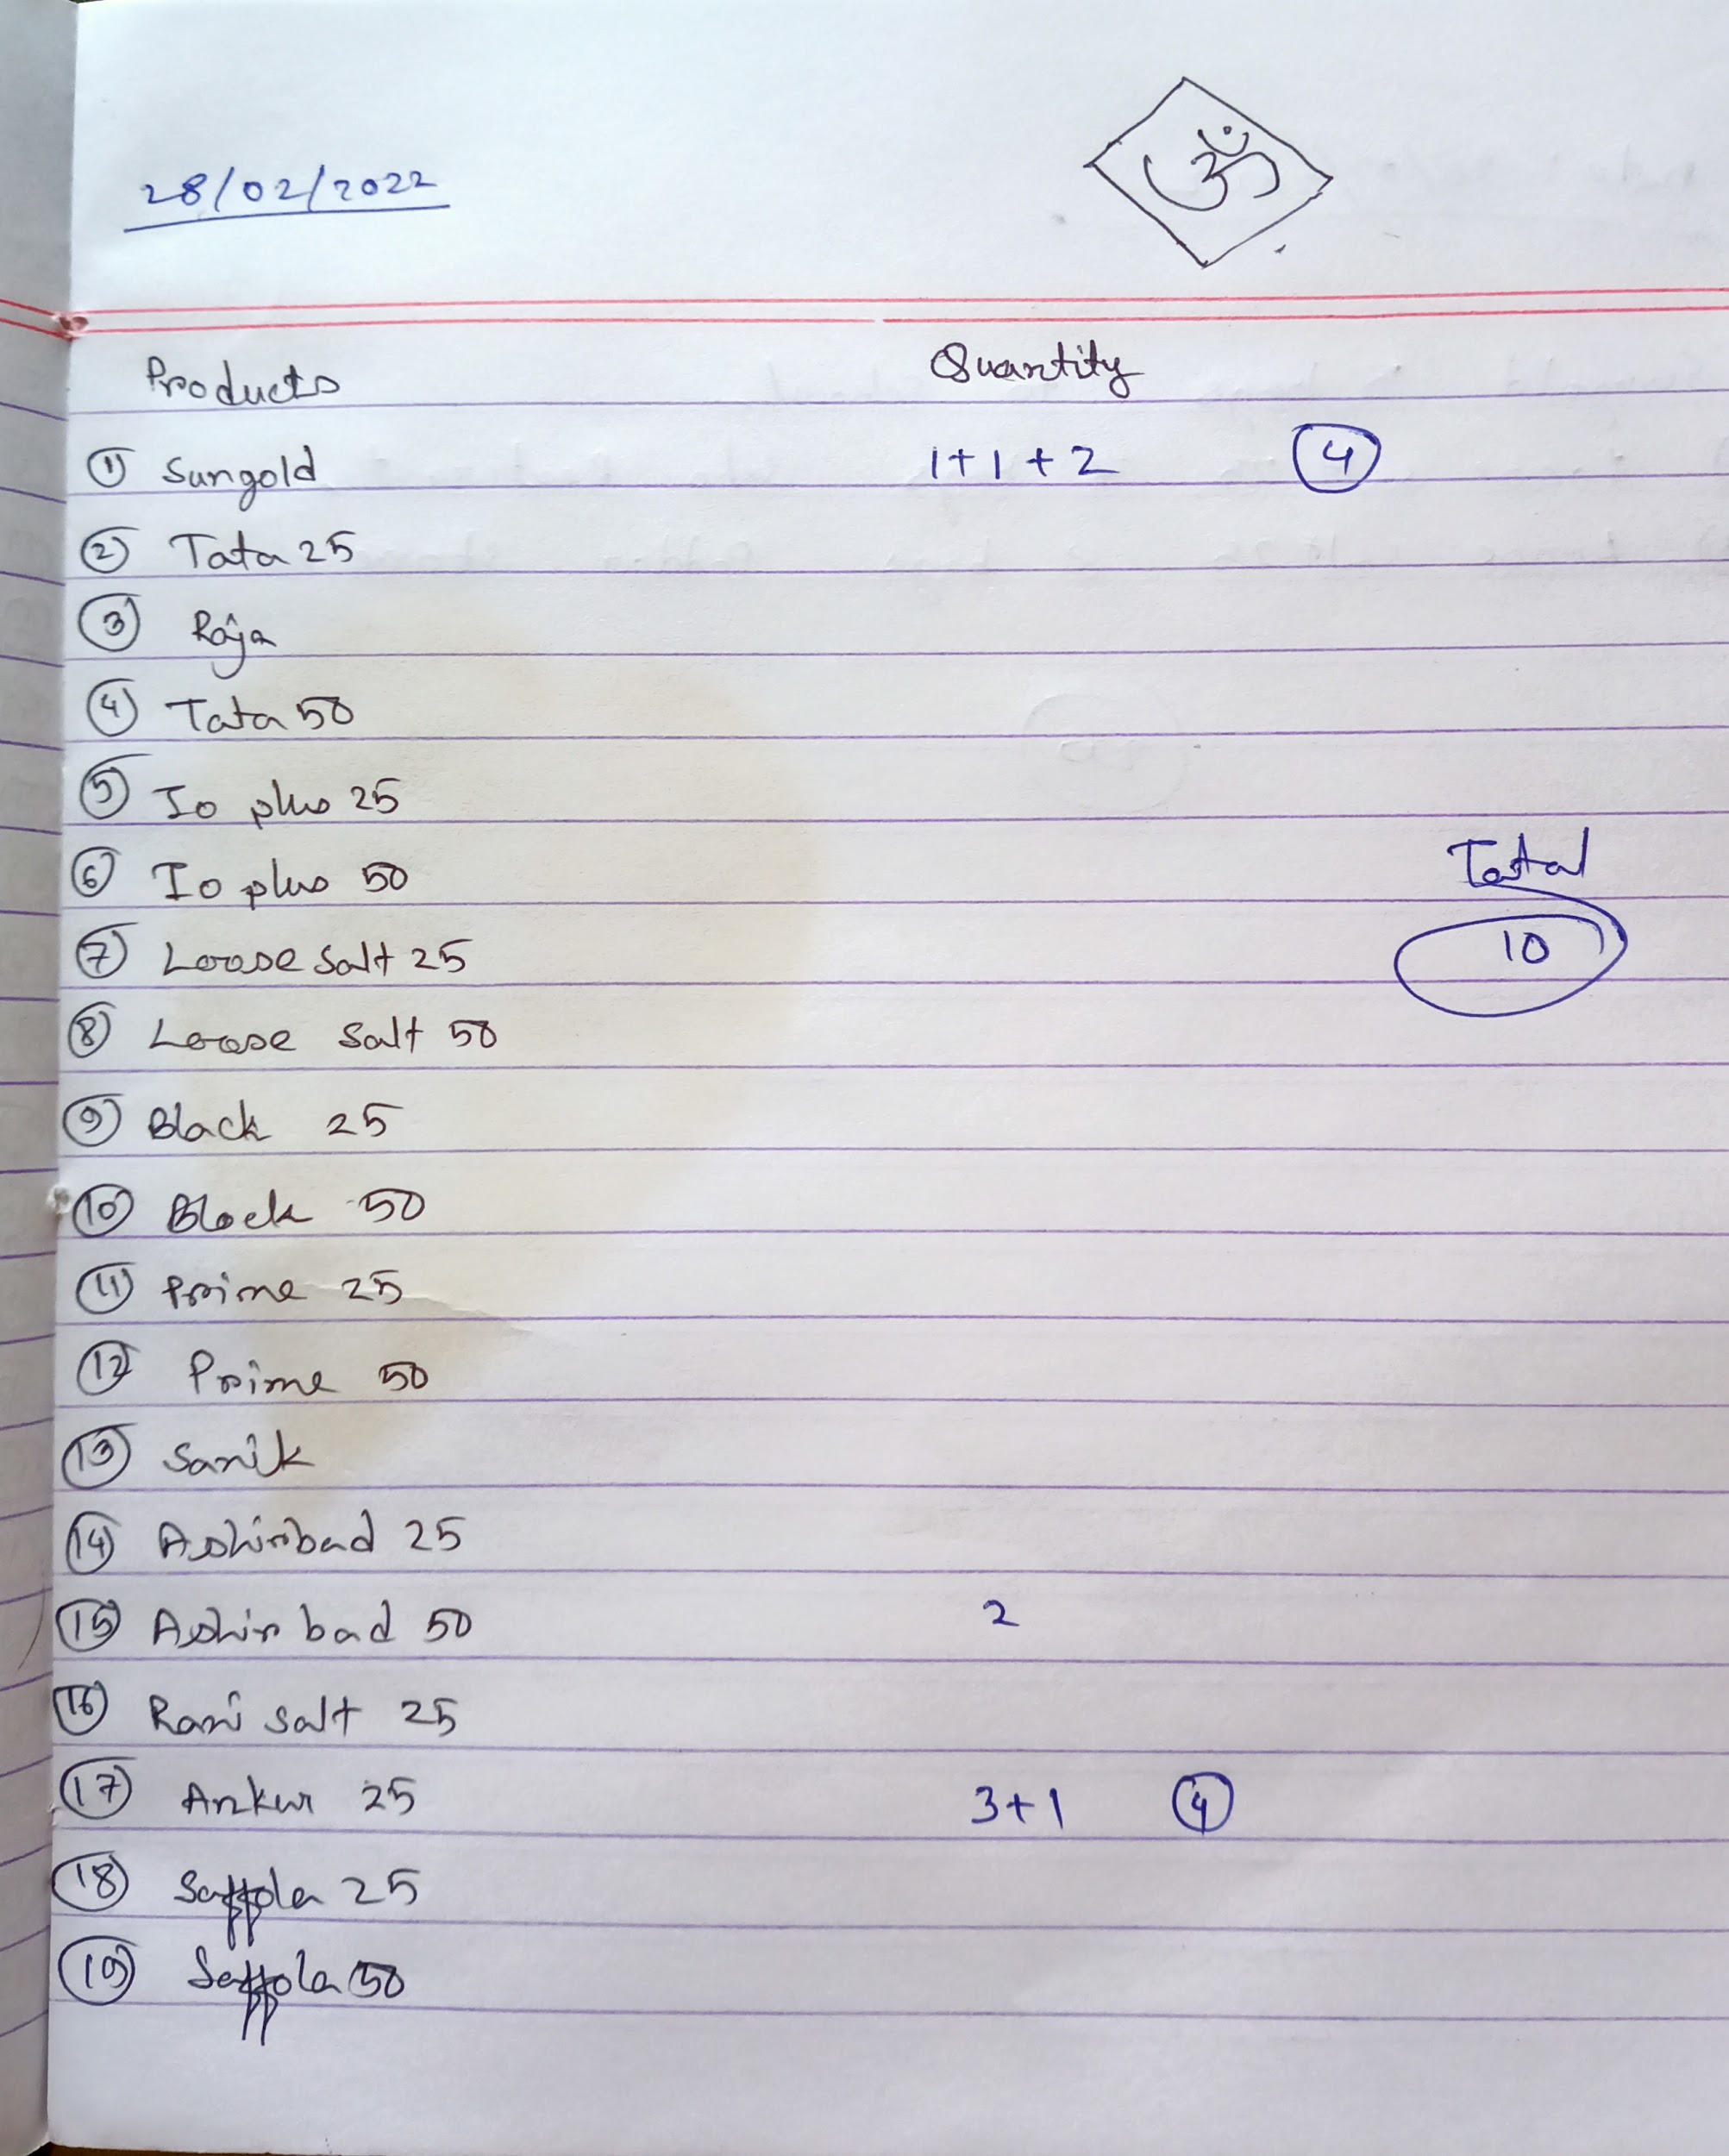 ॐ
28/02/2022
Products Quantity
① Sungold 1+1+2 ④
② Tata 25
③ Raja
④ Tata 50
⑤ Io plus 25
⑥ Io plus 50
Total
⑦ Loose Salt 25 10
⑧ Loose Salt 50
⑨ Black 25
⑩ Black 50
⑪ Prime 25
⑫ Prime 50
⑬ Sanik
⑭ Ashirbad 25
⑮ Ashirbad 50 2
⑯ Rani salt 25
⑰ Ankur 25 3+1 ④
⑱ Saffola 25
⑲ Saffola 50